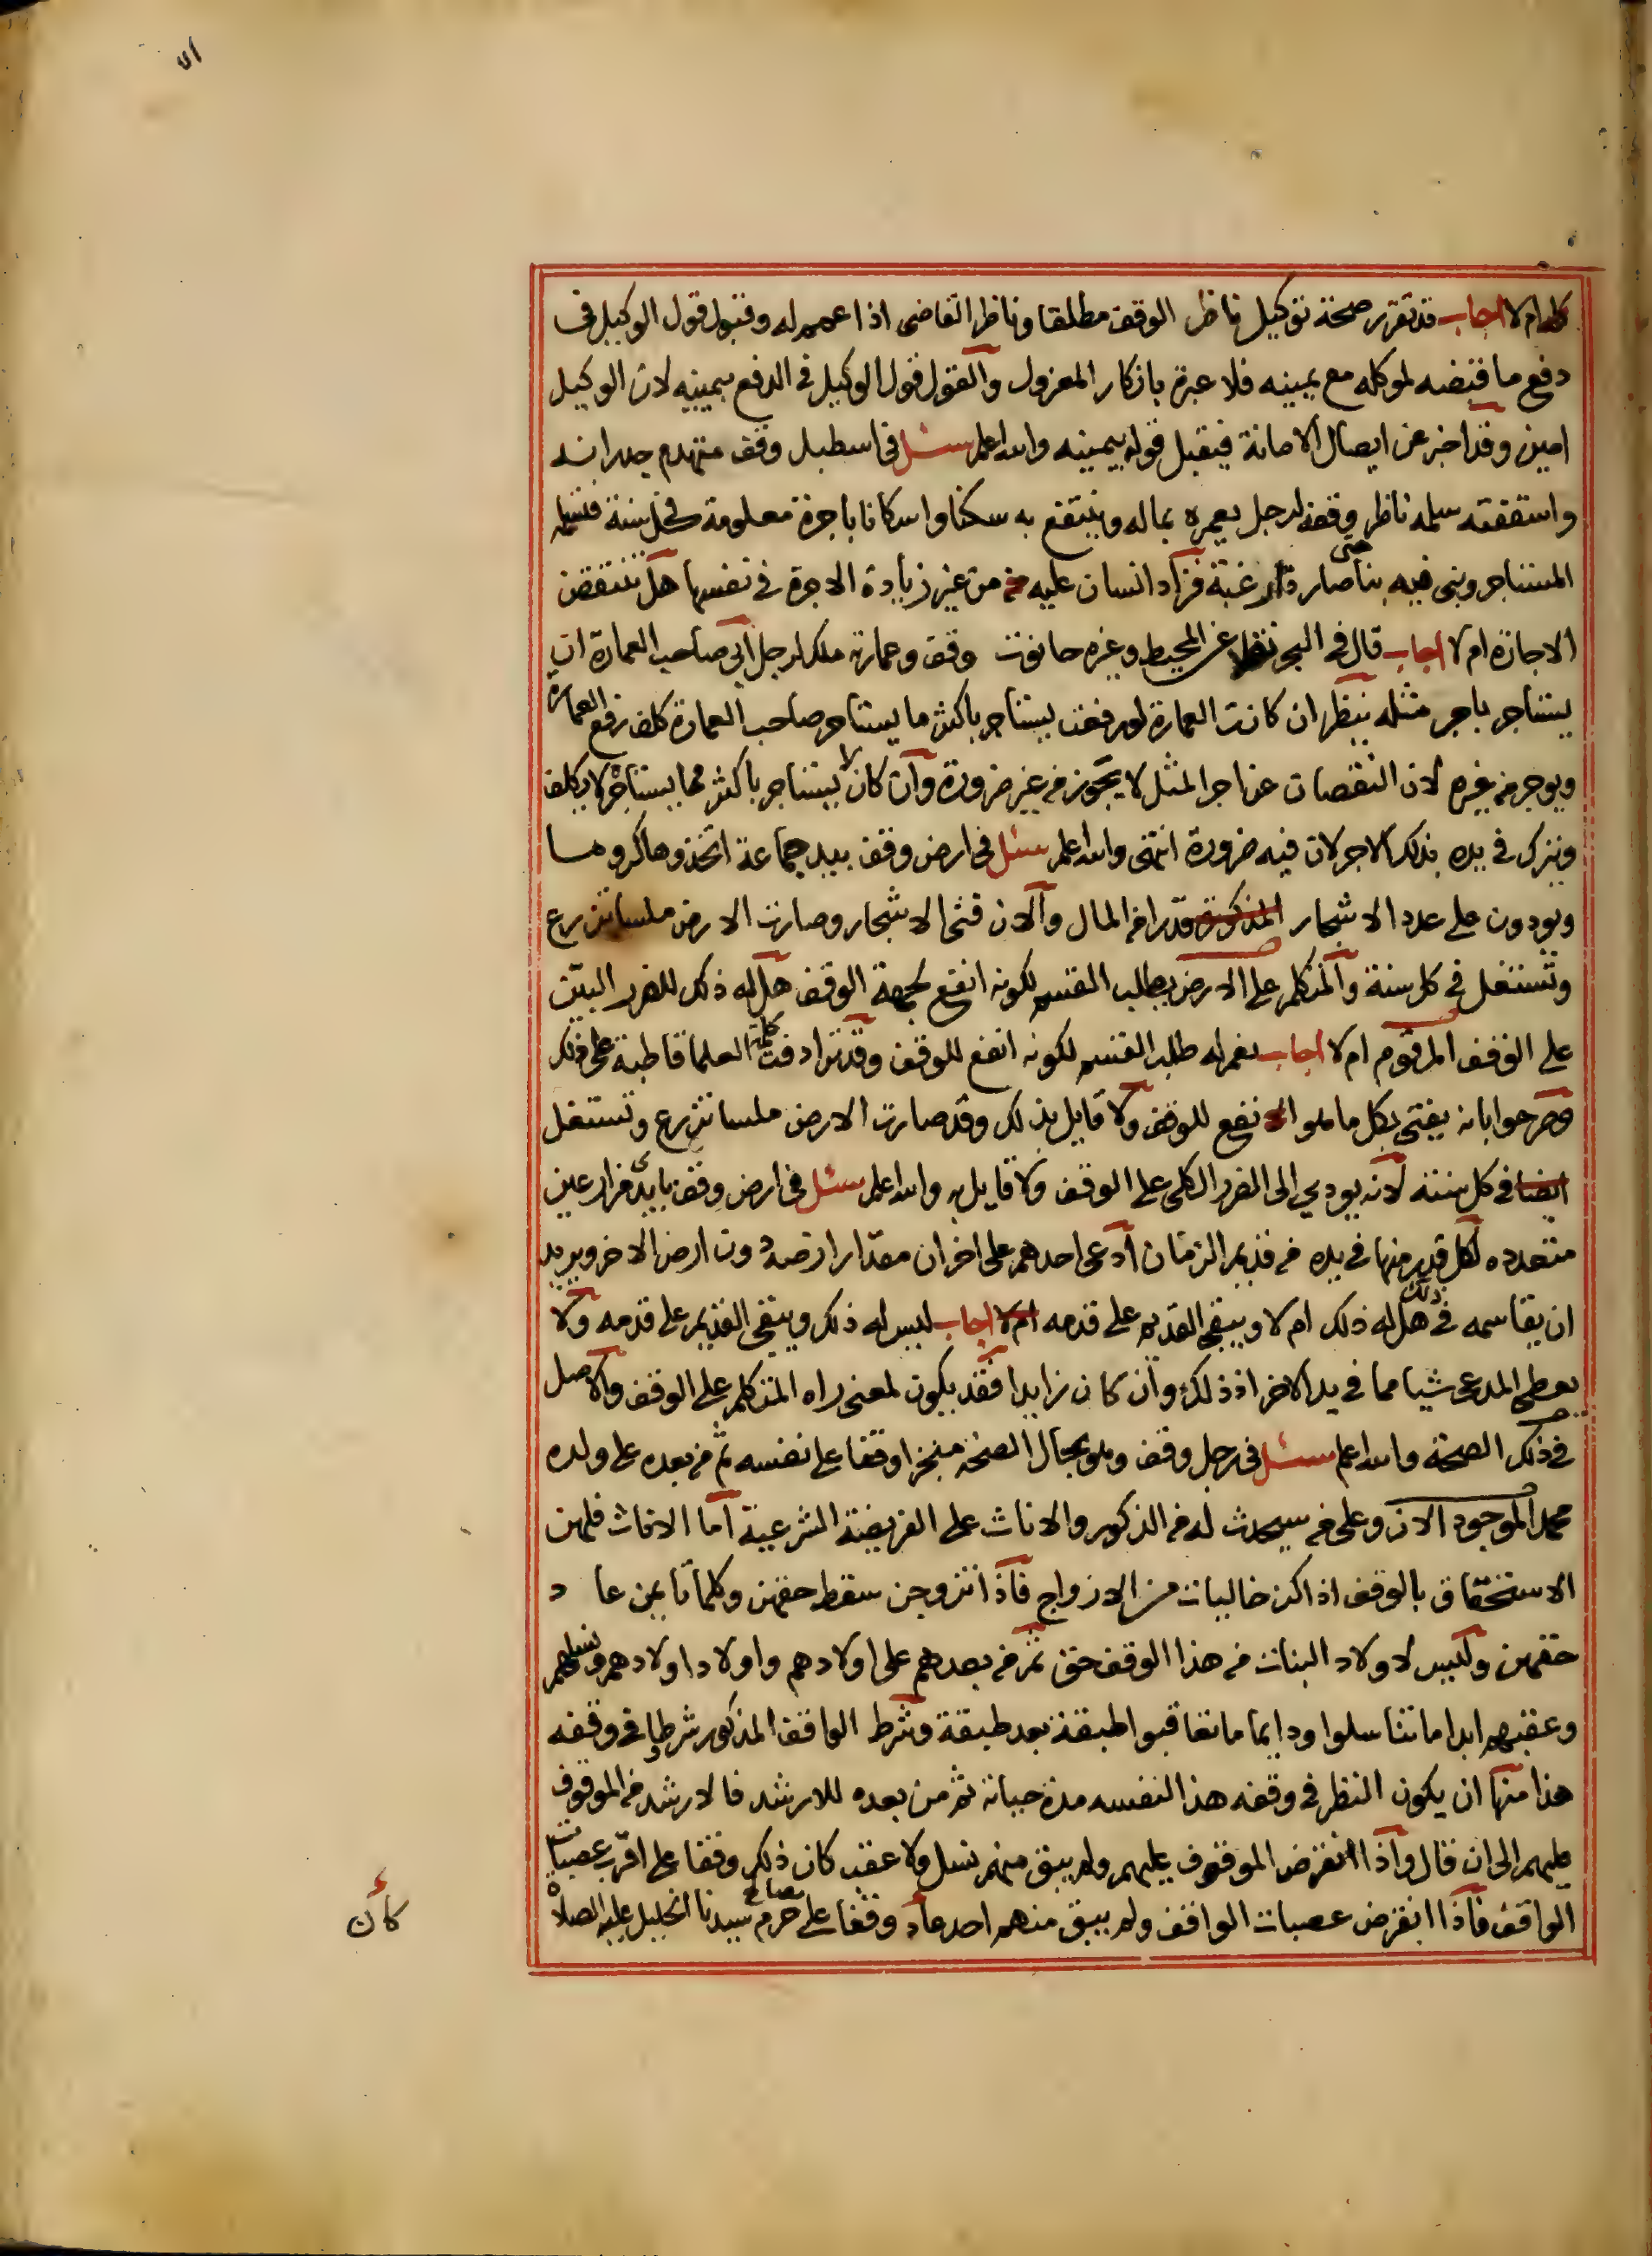 ام لا اجاب قد تقرر صحة توكيل ناظر الوقف مطلقا وناظر القاضى اذا عمم له وقبول قول الوكيل فى
دفع ما قبضه لموكله مع يمينه فلا عبرة بانكار المعزول والقول قول الوكيل فى الدفع بيمينه لان الوكيل
امين وقد اخبر عن ايصال الامانة فيقبل قوله بيمينه والله اعلم سئل فى اسطبل وقف متهدم جدرانه
واسقفته سلمه ناظر وقفه لرجل يعمره بماله وينتفع به سكنا واسكانا باجرة معلومة فى كل سنة فتسلمه
المستاجر وبنى فيه بنا حتى صار ذا رغبة فزاد انسان عليه من غير زيادة الاجرة فى نفسها هل تنتقض
الاجازة ام لا اجاب قال فى البحر نقلا عن المحيط وغيره حانوت وقف وعمارته ملك لرجل ابى صاحب العمارة ان
يستاجر باجر مثله ينظر ان كانت العمارة لو رفعت يستاجر باكثر ما يستاجر صاحب العمارة كلف رفع العمارة
ويوجر من غيره لان النقصان عن اجر المثل لا يجوز من غير ضرورة وان كان لا يستاجر باكثر مما يستاجره لا يكلف
ويترك فى يده بذلك الاجر لان فيه ضرورة انتهى والله اعلم سئل فى ارض وقف بيد جماعة اتخذوها كروما
ويودون على عدد الاشجار المذكورة قدرا من المال والان فنى الاشجار وصارت الارض ملسا تزرع
وتستغل فى كل سنة والمتكلم على الارض يطلب القسم لكونه انفع لجهة الوقف هل له ذلك للضرر البين
على الوقف المرقوم ام لا اجاب نعم له طلب القسم لكونه انفع للوقف وقد ترادفت كلمة العلما قاطبة على ذلك
وصرحوا بانه يفتى بكل ما هو الانفع للوقف ولا قايل بذلك وقد صارت الارض ملسا تزرع وتستغل
ايضا فى كل سنة لانه يودي الى الضرر الكلى على الوقف ولا قايل به والله اعلم سئل فى ارض وقف بايدى مزارعين
متعدده لكل قدر منها فى يده من قديم الزمان ادعى احدهم على اخر ان مقدار ارضه دون ارض الاخر ويريد
ان يقاسمه فى ذلك هل له ذلك ام لا ويبقى القديم على قدمه ام لا اجاب ليس له ذلك ويبقى القديم على قدمه ولا
يعطى المدعى شيا مما فى يد الاخر اذ ذلك وان كان زايدا فقد يكون لمعنى راه المتكلم على الوقف والاصل
فى ذلك الصحة والله اعلم سئل فى رجل وقف وهو بحال الصحة منجزا وقفا على نفسه ثم من بعده على ولده
محمد الموجود الان وعلى من سيحدث له من الذكور والاناث على الفريضة الشرعية اما الاناث فلهن
الاستحقاق بالوقف اذا كن خاليات من الازواج فاذا تزوجن سقط حقهن وكلما تايمن عا د
حقهن وليس لاولاد البنات من هذا الوقف حق ثم من بعدهم على اولادهم واولاد اولادهم ونسلهم
وعقبهم ابدا ما تناسلوا ودايما ما تعاقبوا طبقة بعد طبقة وشرط الواقف المذكور شروطا فى وقفه
هذا منها ان يكون النظر فى وقفه هذا لنفسه مدة حياته ثم من بعده للارشد فالارشد من الموقوف
عليهم الى ان قال واذا انقرض الموقوف عليهم ولم يبق منهم نسل ولا عقب كان ذلك وقفا على اقرب عصبات
الواقف فاذا انقرض عصبات الواقف ولم يبق منهم احد عاد وقفا على مصالح حرم سيدنا الخليل عليه الصلاة
كان